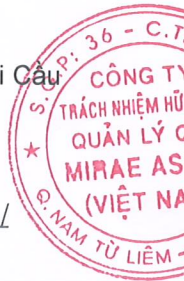 i Cầu
S.G.P: 36 - C.T
CÔNG TY
TRÁCH NHIỆM HỮ
QUẢN LÝ
MIRAE AS
(VIỆT NA
Q. NAM TỪ LIÊM -